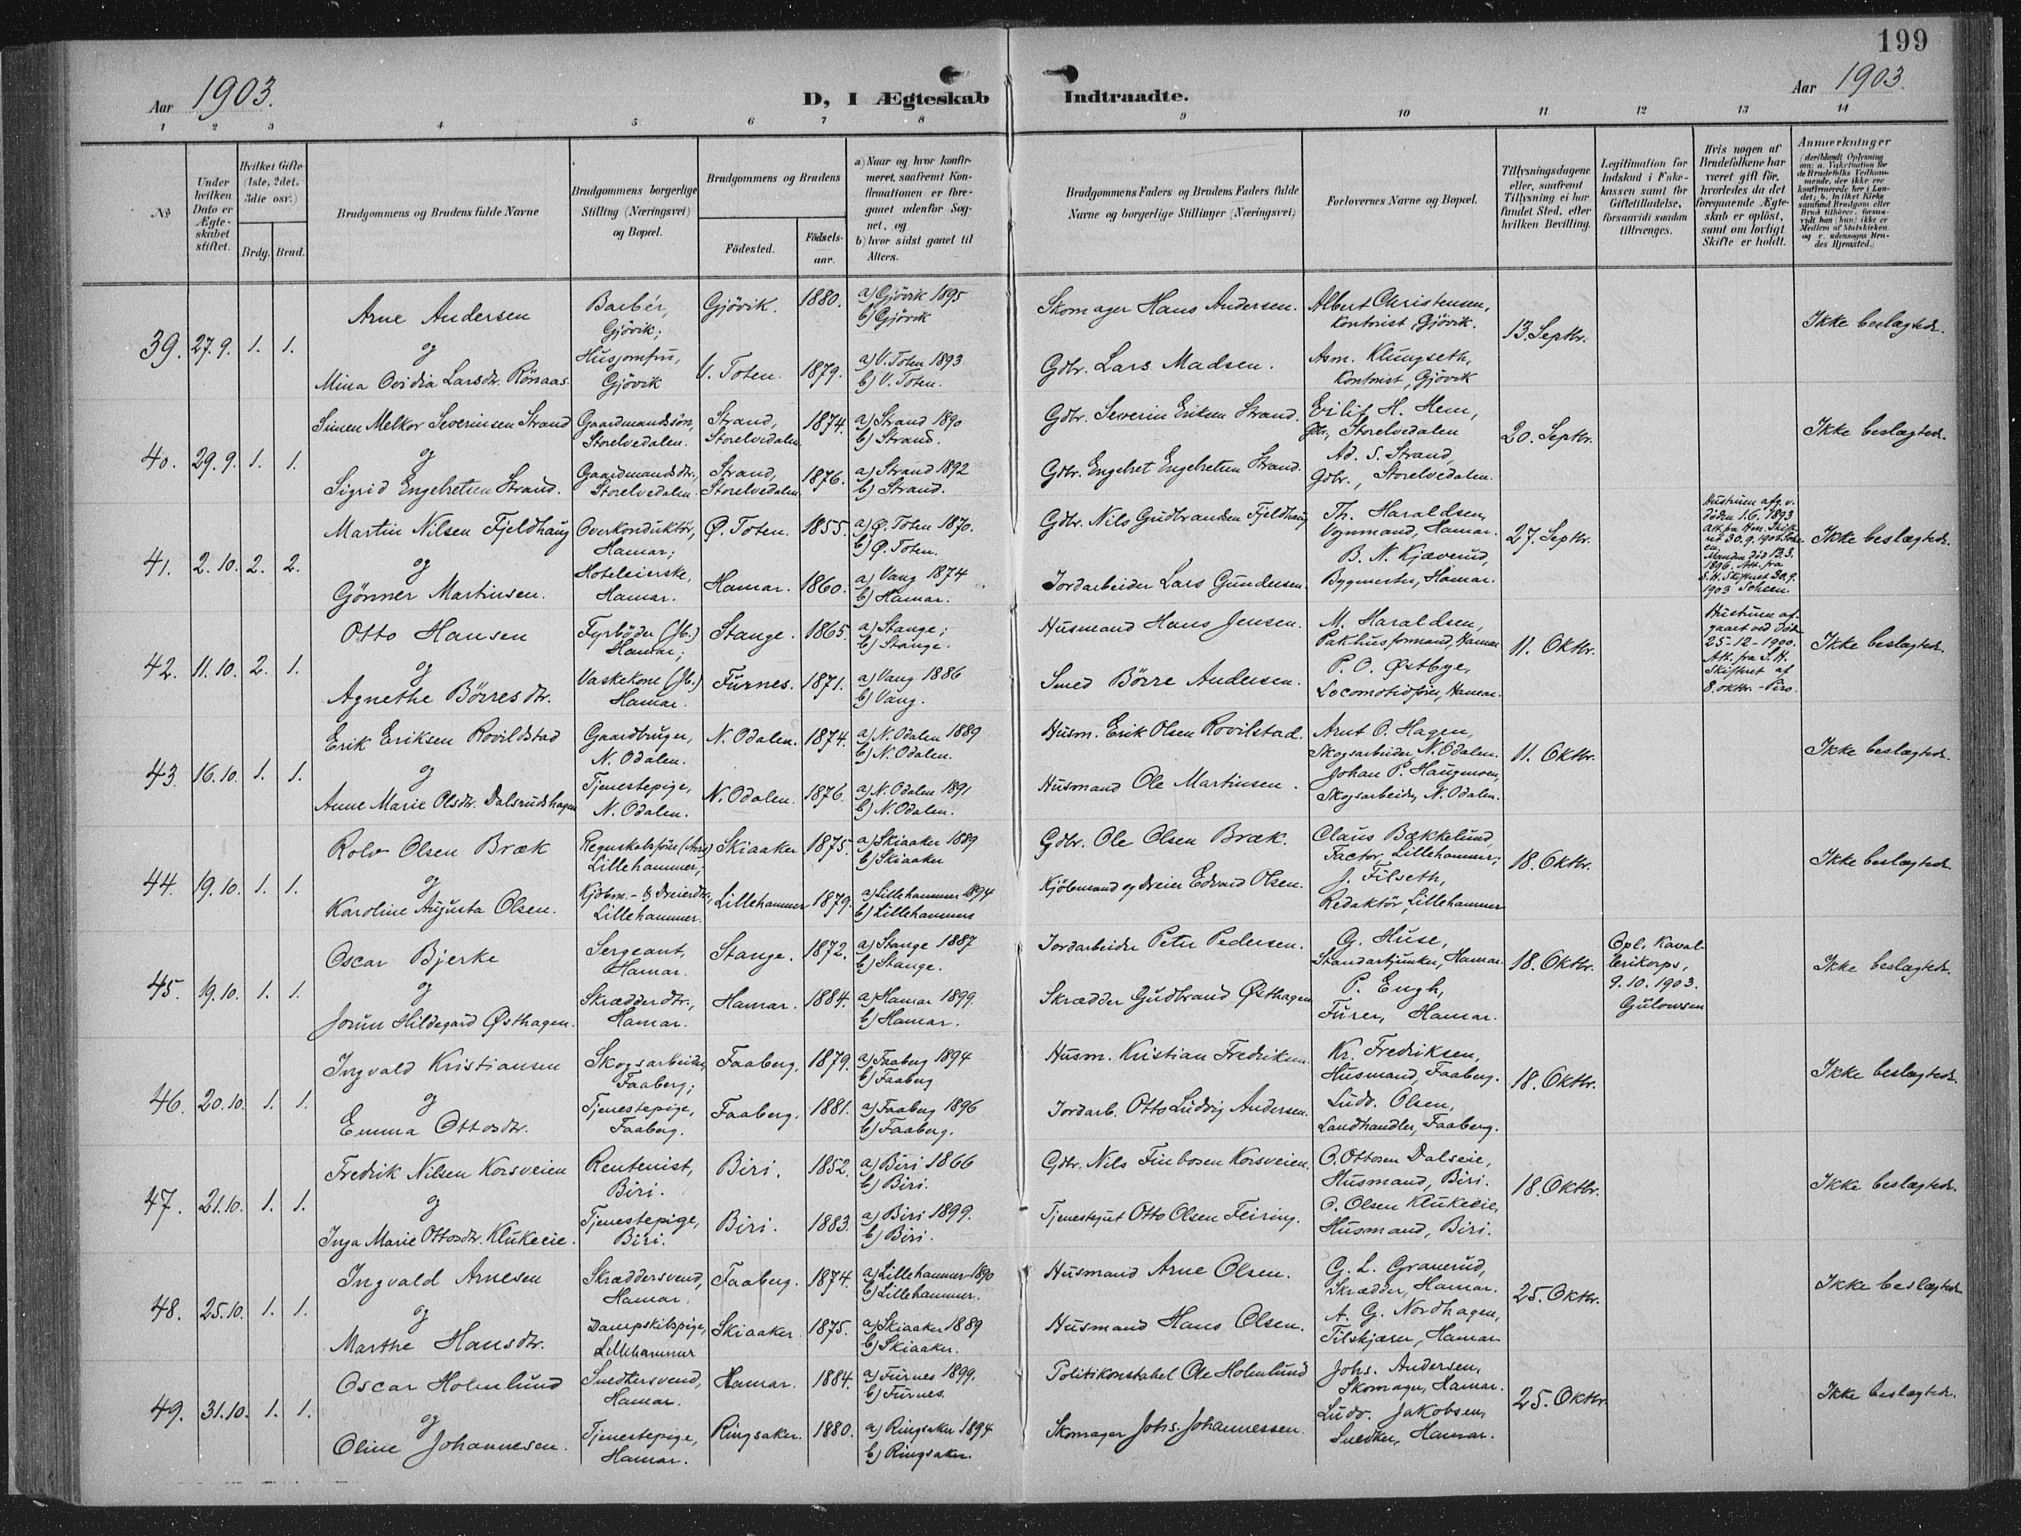 199
Aar 1903.
D, I Ægteskab Indtraadte.
Aar 1903.
1 2 3 4 5 6 7 8 9 10 11 12 13 14
No
Under hvilken Dato er Ægteskabet stiftet.
Hvilket Gifte (1ste, 2det, 3die osv.)
Brdg. Brud.
Brudgommens og Brudens fulde Navne
Brudgommens borgerlige Stilling (Næringsvei) og Bopæl.
Brudgommens og Brudens
Födested.
Födselsaar.
a) Naar og hvor konfirmeret, saafremt Konfirmationen er foregaaet udenfor Sognet, og
b) hvor sidst gaaet til Alters.
Brudgommens Faders og Brudens Faders fulde Navne og borgerlige Stillinger (Næringsvei)
Forlovernes Navne og Bopæl.
Tillysningsdagene eller, saafremt Tillysning ei har fundet Sted, efter hvilken Bevilling.
Legitimation for Indskud i Enkekassen samt for Giftetilladelse, forsaavidt saadan tiltrænges.
Hvis nogen af Brudefolkene har været gift för, hvorledes da det foregaaende Ægteskab er oplöst, samt om lovligt Skifte er holdt.
Anmærkninger
39. 27.9. 1. 1.
Arne Andersen
og
Mina Ovidia Larsdtr. Rönaas.
Barbér, Gjövik;
Husjomfru, Gjövik
Gjövik. 1880. a) Gjövik 1895
b) Gjövik
V. Toten. 1879. a) V. Toten 1893
b) V. Toten.
Skomager Hans Andersen.
Gdbr. Lars Madsen.
Albert Christensen,
Kontorist, Gjövik.
Asm. Klungseth,
Kontorist, Gjövik
13. Septbr.
Ikke beslægtede.
40. 29.9. 1. 1.
Simen Melkor Severinsen Strand
og
Sigrid Engebretsen Strand.
Gaardmandssön, Storelvedalen.
Gaardmandsdtr., Storelvedalen.
Strand, Storelvedalen 1874. a) Strand 1890
b) Strand.
Strand, Storelvedalen 1876. a) Strand 1892
b) Strand.
Gdbr. Severin Eriksen Strand.
Gdbr. Engebret Engebretsen Strand.
H. Hem,
Gbr., Storelvedalen
Ad. S. Strand,
Gdbr., Storelvedalen.
20. Septbr.
Ikke beslægtede.
41. 2.10. 2. 2.
Martin Nilsen Fjeldhaug
og
Gönner Martinsen.
Overkonduktör, Hamar;
Hoteleierske, Hamar.
Ø. Toten. 1855. a) Ø. Toten 1870.
b) Ø. Toten.
Hamar. 1860. a) Vang 1874
b) Hamar.
Gdbr. Nils Gudbrandsen Fjeldhaug
Jordarbeider Lars Gundersen.
Th. Haraldsen,
Vognmand, Hamar.
B. N. Kjæverud,
Bygmester, Hamar.
27. Septbr.
Hustruen afg. v. döden 1.6.1893
Manden död 12.3. 1896. Att. fra S. H. Skifteret 30.9. 1903 Scheen.
Ikke beslægtede.
42. 11.10. 2. 1.
Otto Hansen
og
Agnethe Börresdtr.
Fyrböder (Jb.) Hamar;
Vaskekone (Jb.) Hamar.
Stange. 1865. a) Stange;
b) Stange.
Furnes. 1871. a) Vang 1886
b) Vang.
Husmand Hans Jensen.
Smed Börre Andersen.
M. Haraldsen,
Pakhusformand, Hamar
P. O. Østbye,
Locomotivförer, Hamar.
11. Oktbr.
Hustruen afgaaet ved döde 25-12-1900. Att. fra S. H. Skifteret af 8. oktbr.
Ikke beslægtede.
43. 16.10. 1. 1.
Erik Eriksen Rovildstad
og
Anne Marie Olsdtr. Dalsrudshagen
Gaardbruger, N. Odalen.
Tjenestepige, N. Odalen.
N. Odalen. 1874. a) N. Odalen 1889
b) N. Odalen.
N. Odalen. 1876. a) N. Odalen 1891
b) N. Odalen.
Husm. Erik Olsen Rovilstad.
Husmand Ole Martinsen.
Arnt O. Hagen,
Skogsarbeider N. Odalen.
Johan P. Haugmoen,
Skogsarbeider, N. Odalen.
11. Oktbr.
Ikke beslægtede.
44. 19.10. 1. 1.
Rolv Olsen Bræk
og
Karoline Augusta Olsen.
Regnskabsförer Lillehammer;
Kjöbm.- & Dreierdtr., Lillehammer.
Skiaaker 1875. a) Skiaaker 1889
b) Skiaaker
Lillehammer 1879. a) Lillehammer 1894
b) Lillehammer
Gdbr. Ole Olsen Bræk.
Kjöbmand og Dreier Edvard Olsen.
Claus Bækkelund,
Factor, Lillehammer;
J. Filseth,
Redaktör, Lillehammer
18. Oktbr.
Ikke beslægtede.
45. 19.10. 1. 1.
Oscar Bjerke
og
Jorun Hildegard Østhagen.
Sergeant, Hamar.
Skrædderdtr., Hamar.
Stange. 1872. a) Stange 1887
b) Stange.
Hamar. 1884. a) Hamar 1899.
b) Hamar.
Jordarbeider Peter Pedersen.
Skrædder Gudbrand Østhagen
G. Huse,
Standartjunker, Hamar.
P. Engh,
Furer, Hamar.
18. Oktbr.
Opl. Kavallerikorps, 9.10.1903. Gulowsen
Ikke beslægtede.
46. 20.10. 1. 1.
Ingvald Kristiansen
og
Emma Ottosdtr.
Skogsarbeider, Faaberg;
Tjenestepige, Faaberg.
Faaberg. 1879. a) Faaberg 1894
b) Faaberg
Faaberg. 1881. a) Faaberg 1896
b) Faaberg.
Husm. Kristian Fredriksen.
Jordarb. Otto Ludvig Andersen.
Kr. Fredriksen,
Husmand, Faaberg.
Ludv. Olsen,
Landhandler, Faaberg.
18. Oktbr.
Ikke beslægtede.
47. 21.10. 1. 1.
Fredrik Nilsen Korsveien
og
Inga Marie Ottosdtr. Klukeeie.
Rentenist, Biri.
Tjenestepige, Biri.
Biri. 1852. a) Biri 1866
b) Biri.
Biri. 1883. a) Biri 1899.
b) Biri.
Gdbr. Nils Finbosen Korsveien.
Tjenestegut Otto Olsen Feiring.
O. Ottosen Dalseie,
Husmand, Biri.
O. Olsen Klukeeie,
Husmand, Biri.
18. Oktbr.
Ikke beslægtede.
48. 25.10. 1. 1.
Ingvald Arnesen
og
Marthe Hansdtr.
Skræddersvend, Hamar.
Dampskibspige, Lillehammer
Faaberg. 1874. a) Lillehammer 1890
b) Lillehammer.
Skiaaker. 1875. a) Skiaaker 1889
b) Skiaaker.
Husmand Arne Olsen.
Husmand Hans Olsen.
G. L. Granerud,
Skrædder, Hamar.
A. G. Nordhagen,
Tilskjærer, Hamar
25. Oktbr.
Ikke beslægtede
49. 31.10. 1. 1.
Oscar Holmlund
og
Oline Johannesen.
Snedkersvend, Hamar.
Tjenestepige, Hamar.
Hamar. 1884. a) Furnes 1899.
b) Furnes.
Ringsaker. 1880. a) Ringsaker 1894
b) Ringsaker.
Politikonstabel Ole Holmlund
Skomager Johs. Johannessen.
Johs. Andersen,
Skomager, Hamar.
Ludv. Jakobsen,
Snedker, Hamar.
25. Oktbr.
Ikke beslægtede.